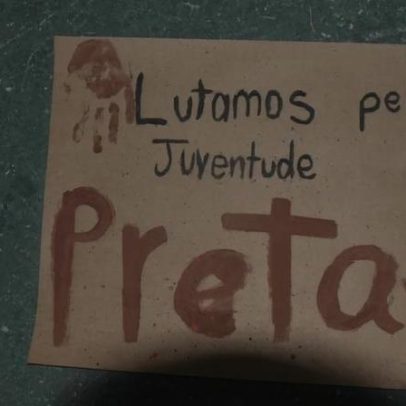 Lutamos pe
Juventude
Preta